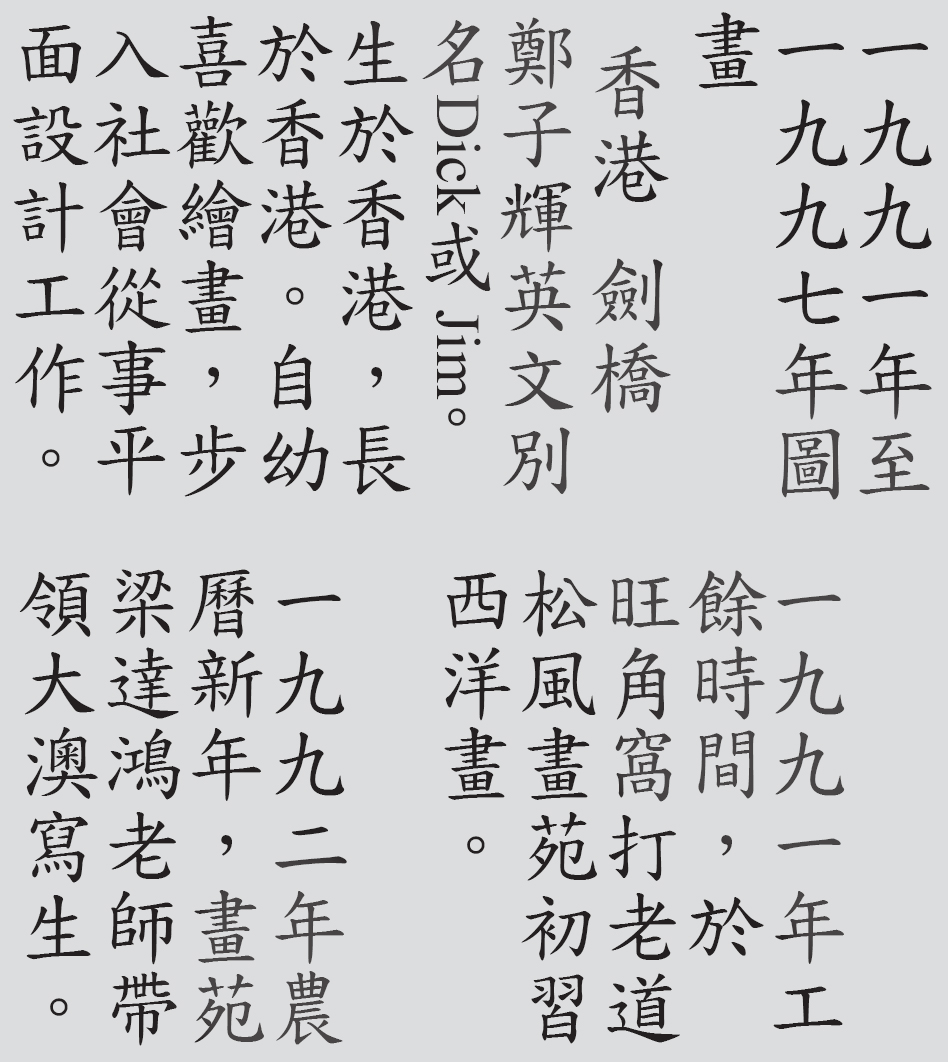 一九九一年至
一九九七年圖
畫
香港 劍橋
鄭子輝英文別
名Dick或 Jim。
生於香港，長
於香港。自幼
喜歡繪畫，步
入社會從事平
面設計工作。
一九九一年工
餘時間，於
旺角窩打老道
松風畫苑初習
西洋畫。
一九九二年農
曆新年，畫苑
梁達鴻老師帶
領大澳寫生。